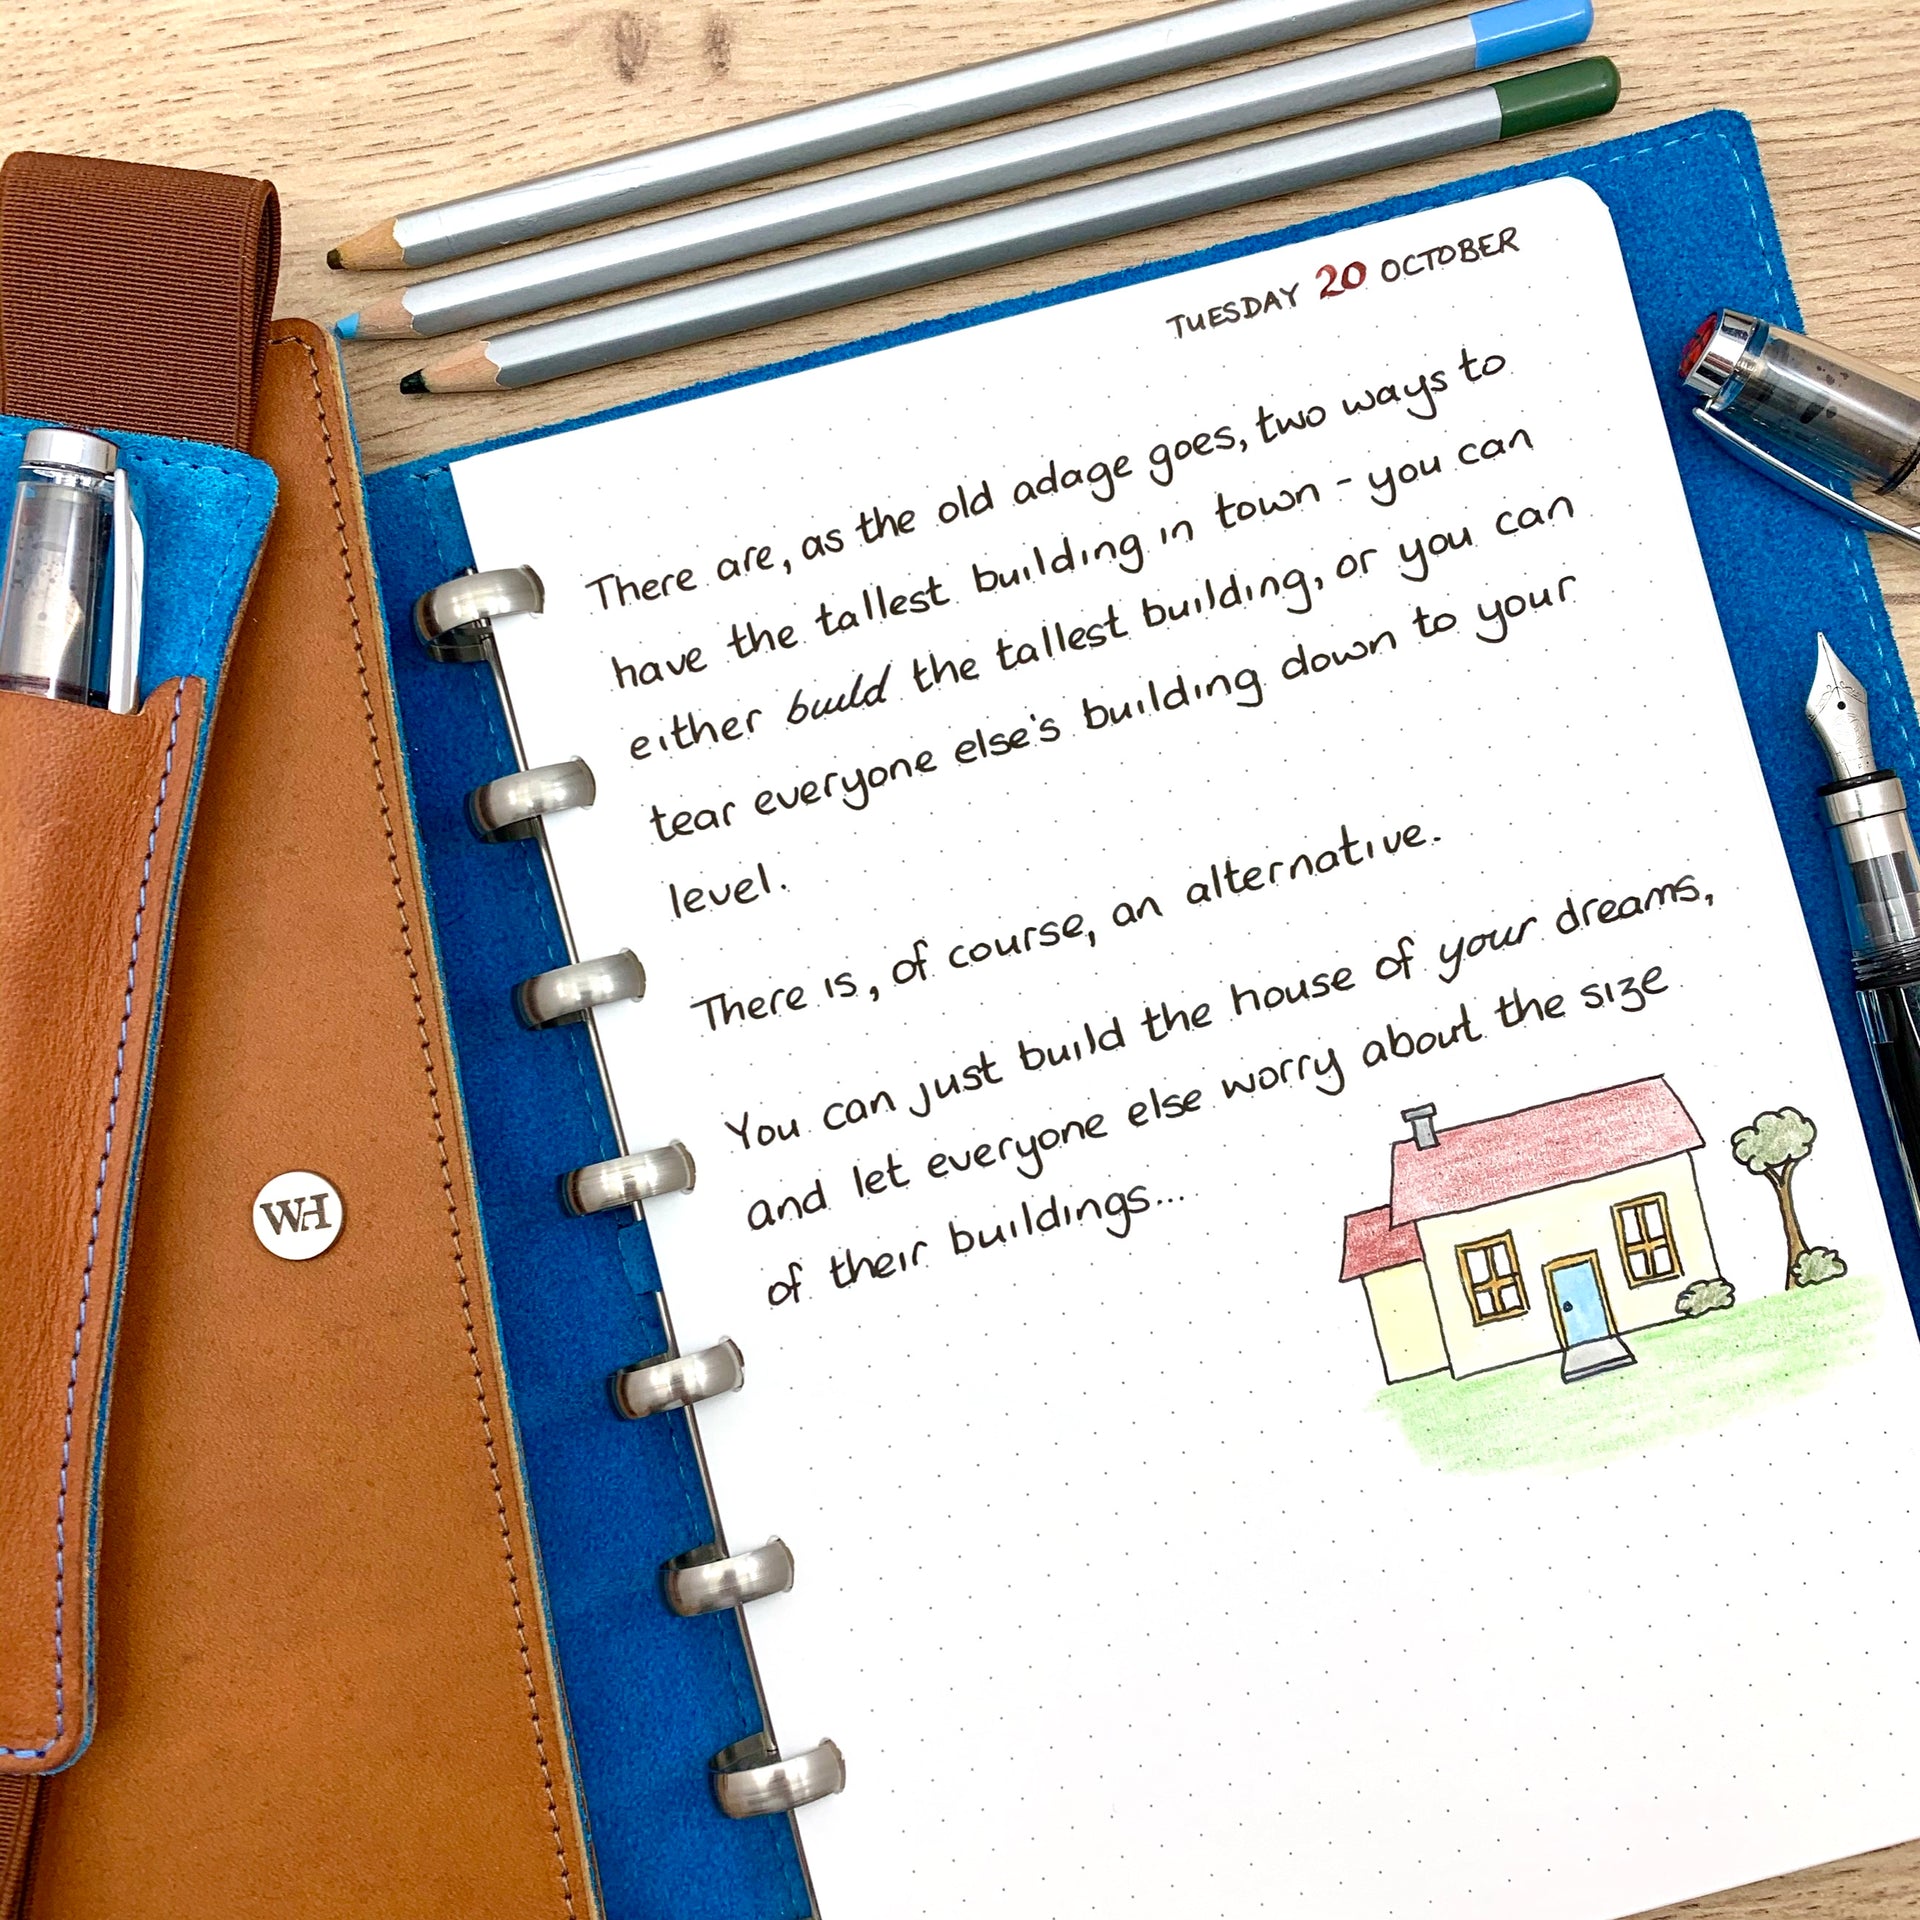 TUESDAY 20 OCTOBER
There are, as the old adage goes, two ways to
have the tallest building in town - you can
either build the tallest building, or you can
tear everyone else's building down to your
level.
There is, of course, an alternative.
You can just build the house of your dreams,
and let everyone else worry about the size
of their buildings...
WH